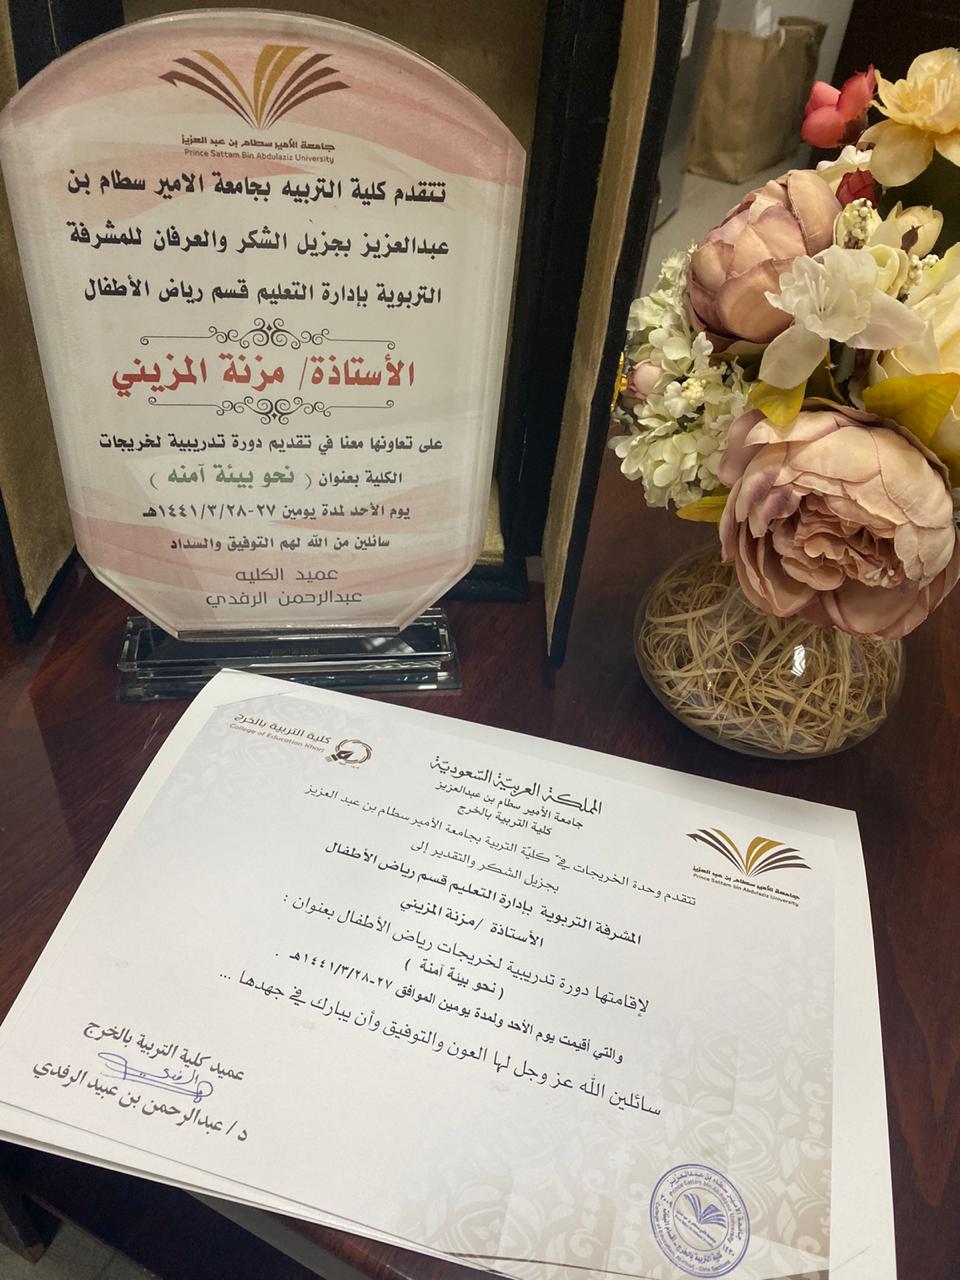 جامعة الأمير سطام بن عبد العزيز
Prince Sattam Bin Abdulaziz University
تتقدم كلية التربيه بجامعة الامير سطام بن
عبدالعزيز بجزيل الشكر والعرفان للمشرفة
التربوية بإدارة التعليم قسم رياض الأطفال
الأستاذة/ مزنة المزيني
على تعاونها معنا في تقديم دورة تدريبية لخريجات
الكلية بعنوان ( نحو بيئة آمنه )
يوم الأحد لمدة يومين ٢٧-١٤٤١/٣/٢٨هـ
سائلين من الله لهم التوفيق والسداد
عميد الكليه
عبدالرحمن الرفدي
كلية التربية بالخرج
College of Education Kharj
المملكة العربيّة السّعوديّة
جامعة الأمير سطام بن عبدالعزيز
كلية التربية بالخرج
جامعة الأمير سطام بن عبد العزيز
Prince Sattam bin Abdulaziz University
تتقدم وحدة الخريجات في كليّة التربية بجامعة الأمير سطام بن عبد العزيز
بجزيل الشكر والتقدير إلى
المشرفة التربوية بإدارة التعليم قسم رياض الأطفال
الأستاذة /مزنة المزيني
لإقامتها دورة تدريبية لخريجات رياض الأطفال بعنوان :
( نحو بيئة آمنة )
والتي أقيمت يوم الأحد ولمدة يومين الموافق ٢٧-١٤٤١/٣/٢٨هـ .
سائلين الله عز وجل لها العون والتوفيق وأن يبارك في جهدها ...
عميد كلية التربية بالخرج
د/ عبدالرحمن بن عبيد الرفدي